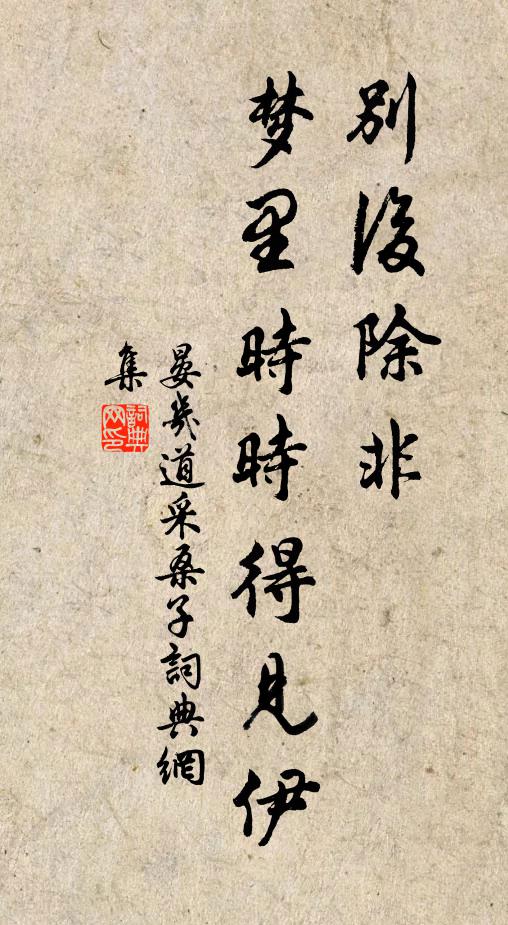 别後除非
梦里時時得見伊
晏幾道采桑子詞典網
集
詞典網印